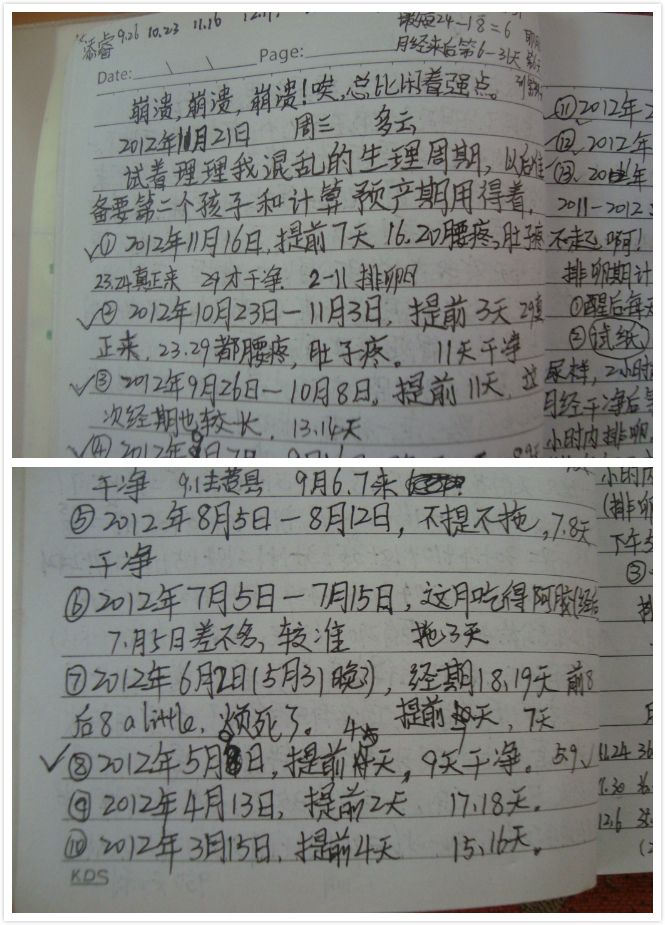 添睿 9.26 10.23 11.16 12.17
最短24-18=6
月经来后第6-31天
Date: Page:
崩溃,崩溃,崩溃!唉,总比闲着强点。
2012年11月21日 周三 多云
试着理理我混乱的生理周期,以后准
备要第二个孩子和计算预产期用得着。
① 2012年11月16日,提前7天 16.20腰疼,肚子疼
23.24真正来 29才干净. 2-11 排卵日
② 2012年10月23日-11月3日, 提前3天 29真
正来, 23.29都腰疼, 肚子疼。 11天干净
③ 2012年9月26日-10月8日, 提前11天, 这
次经期也较长, 13.14天
④ 2012年9月7日
干净 9.1去黄县 9月6.7来
⑤ 2012年8月5日-8月12日, 不提不拖, 7.8天
干净
⑥ 2012年7月5日-7月15日, 这月吃得阿胶(经后
7.月5日差不多, 较准 拖3天
⑦ 2012年6月2日(5月31晚了), 经期18、19天 前8
后8 a little, 烦死了。 提前天, 7天
⑧ 2012年5月8日, 提前天, 9天干净。 5.9
⑨ 2012年4月13日, 提前2天 17.18天。
⑩ 2012年3月15日, 提前4天 15、16天。
KDS
⑪ 2012年2
⑫ 2012年
⑬ 年
2011-2012
不起,啊!
排卵期计
①醒后每天
②试纸
尿样, 2小时
月经干净后
小时内排卵,
小时内
(排卵
下午5
③
11.24 36
7.30 36
12.6 35